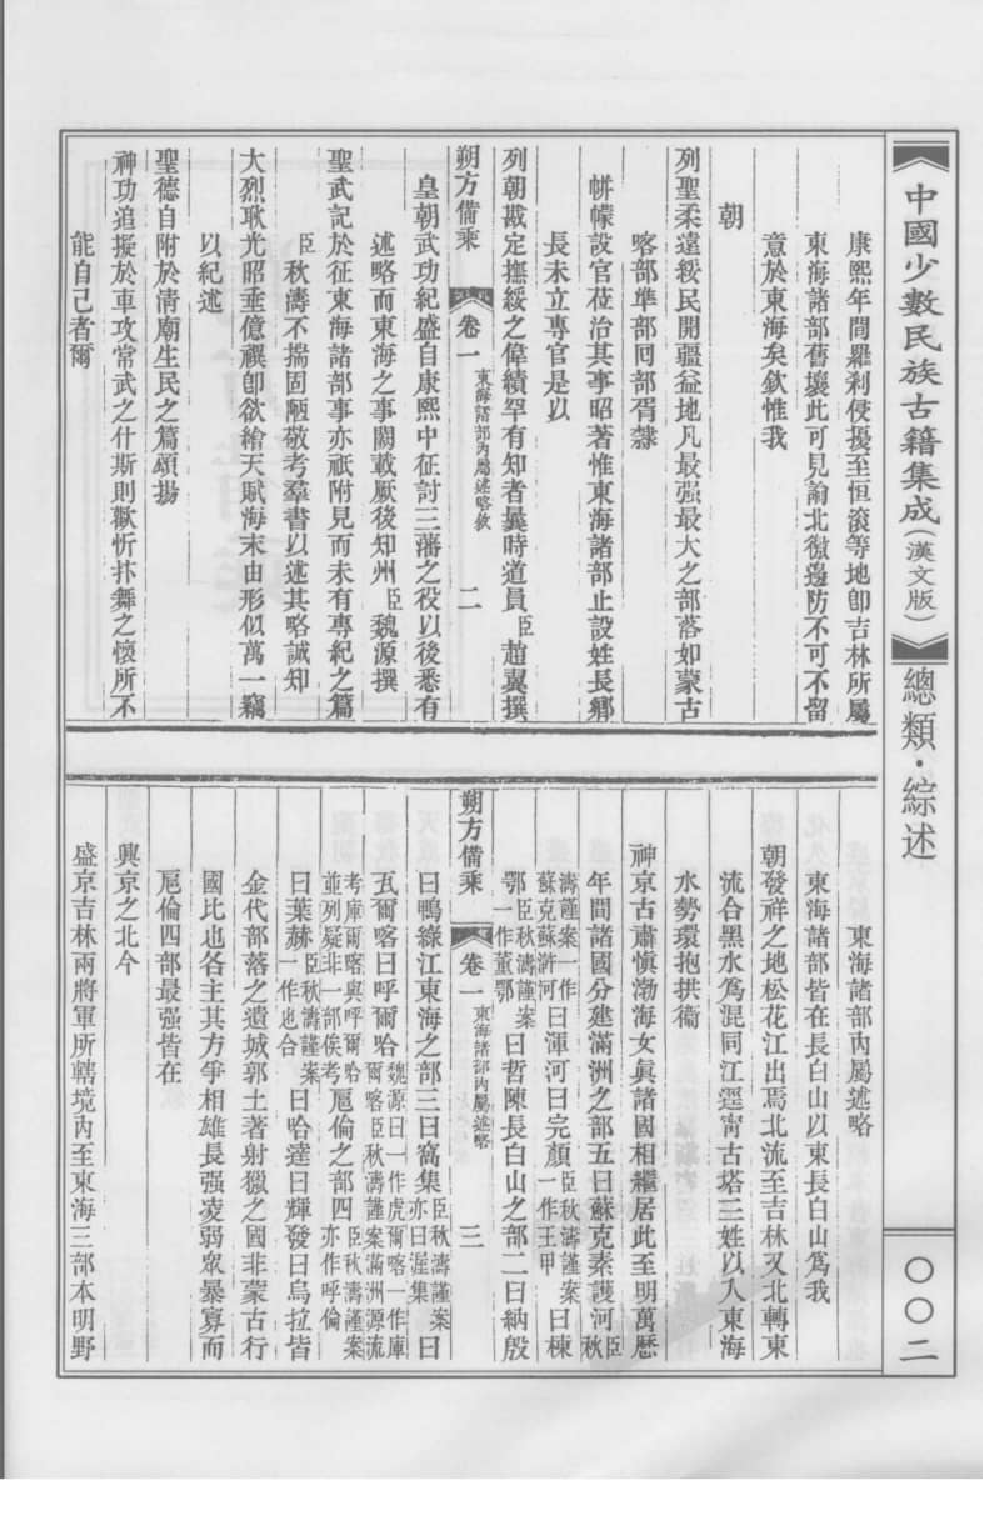 中國少數民族古籍集成(漢文版)
總類·綜述
〇〇二
康熙年間羅刹侵擾至恒滾等地卽吉林所屬
東海諸部舊壤此可見論北徼邊防不可不留
意於東海矣欽惟我
朝
列聖柔遠綏民開疆益地凡最强最大之部落如蒙古
喀部準部囘部胥隸
帡幪設官莅治其事昭著惟東海諸部止設姓長鄉
長未立專官是以
列朝戡定撫綏之偉績罕有知者曩時道員臣趙翼撰
朔方備乘
卷一
東海諸部內屬述略敘
二
皇朝武功紀盛自康熙中征討三藩之役以後悉有
述略而東海之事闕載厥後知州臣魏源撰
聖武記於征東海諸部事亦祇附見而未有專紀之篇
臣秋濤不揣固陋敬考羣書以述其略誠知
大烈耿光昭垂億禩卽欲繪天賦海末由形似萬一竊
以紀述
聖德自附於清廟生民之篇頌揚
神功追擬於車攻常武之什斯則歡忻抃舞之懷所不
能自己者爾
東海諸部內屬述略
東海諸部皆在長白山以東長白山爲我
朝發祥之地松花江出焉北流至吉林又北轉東
流合黑水爲混同江逕甯古塔三姓以入東海
水勢環抱拱衞
神京古肅愼渤海女眞諸國相繼居此至明萬厯
年間諸國分建滿洲之部五曰蘇克素護河臣秋
濤謹案一作蘇克蘇滸河曰渾河曰完顏一作王甲臣秋濤謹案曰棟
鄂臣秋濤謹案一作董鄂曰哲陳長白山之部二曰納殷
朔方備乘
卷一
東海諸部內屬述略
三
曰鴨綠江東海之部三曰窩集臣秋濤謹案亦曰渥集曰
瓦爾喀曰呼爾哈魏源曰一作虎爾喀一作庫爾喀臣秋濤謹案滿洲源流
考庫爾喀與呼爾哈並列疑非一部俟考扈倫之部四臣秋濤謹案亦作呼倫
曰葉赫臣秋濤謹案一作也合曰哈達曰輝發曰烏拉皆
金代部落之遺城郭土著射獵之國非蒙古行
國比也各主其方爭相雄長强凌弱眾暴寡而
扈倫四部最强皆在
興京之北今
盛京吉林兩將軍所轄境內至東海三部本明野